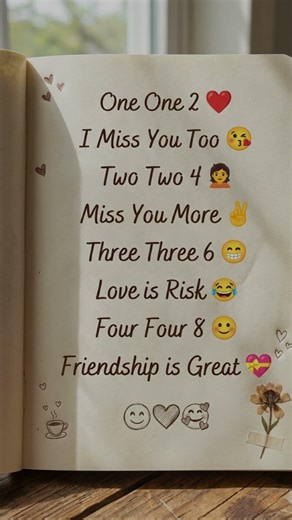 One One 2 ❤️
I Miss You Too 😘
Two Two 4 🙍‍♀️
Miss You More ✌️
Three Three 6 😁
Love is Risk 😂
Four Four 8 🙂
Friendship is Great 💝